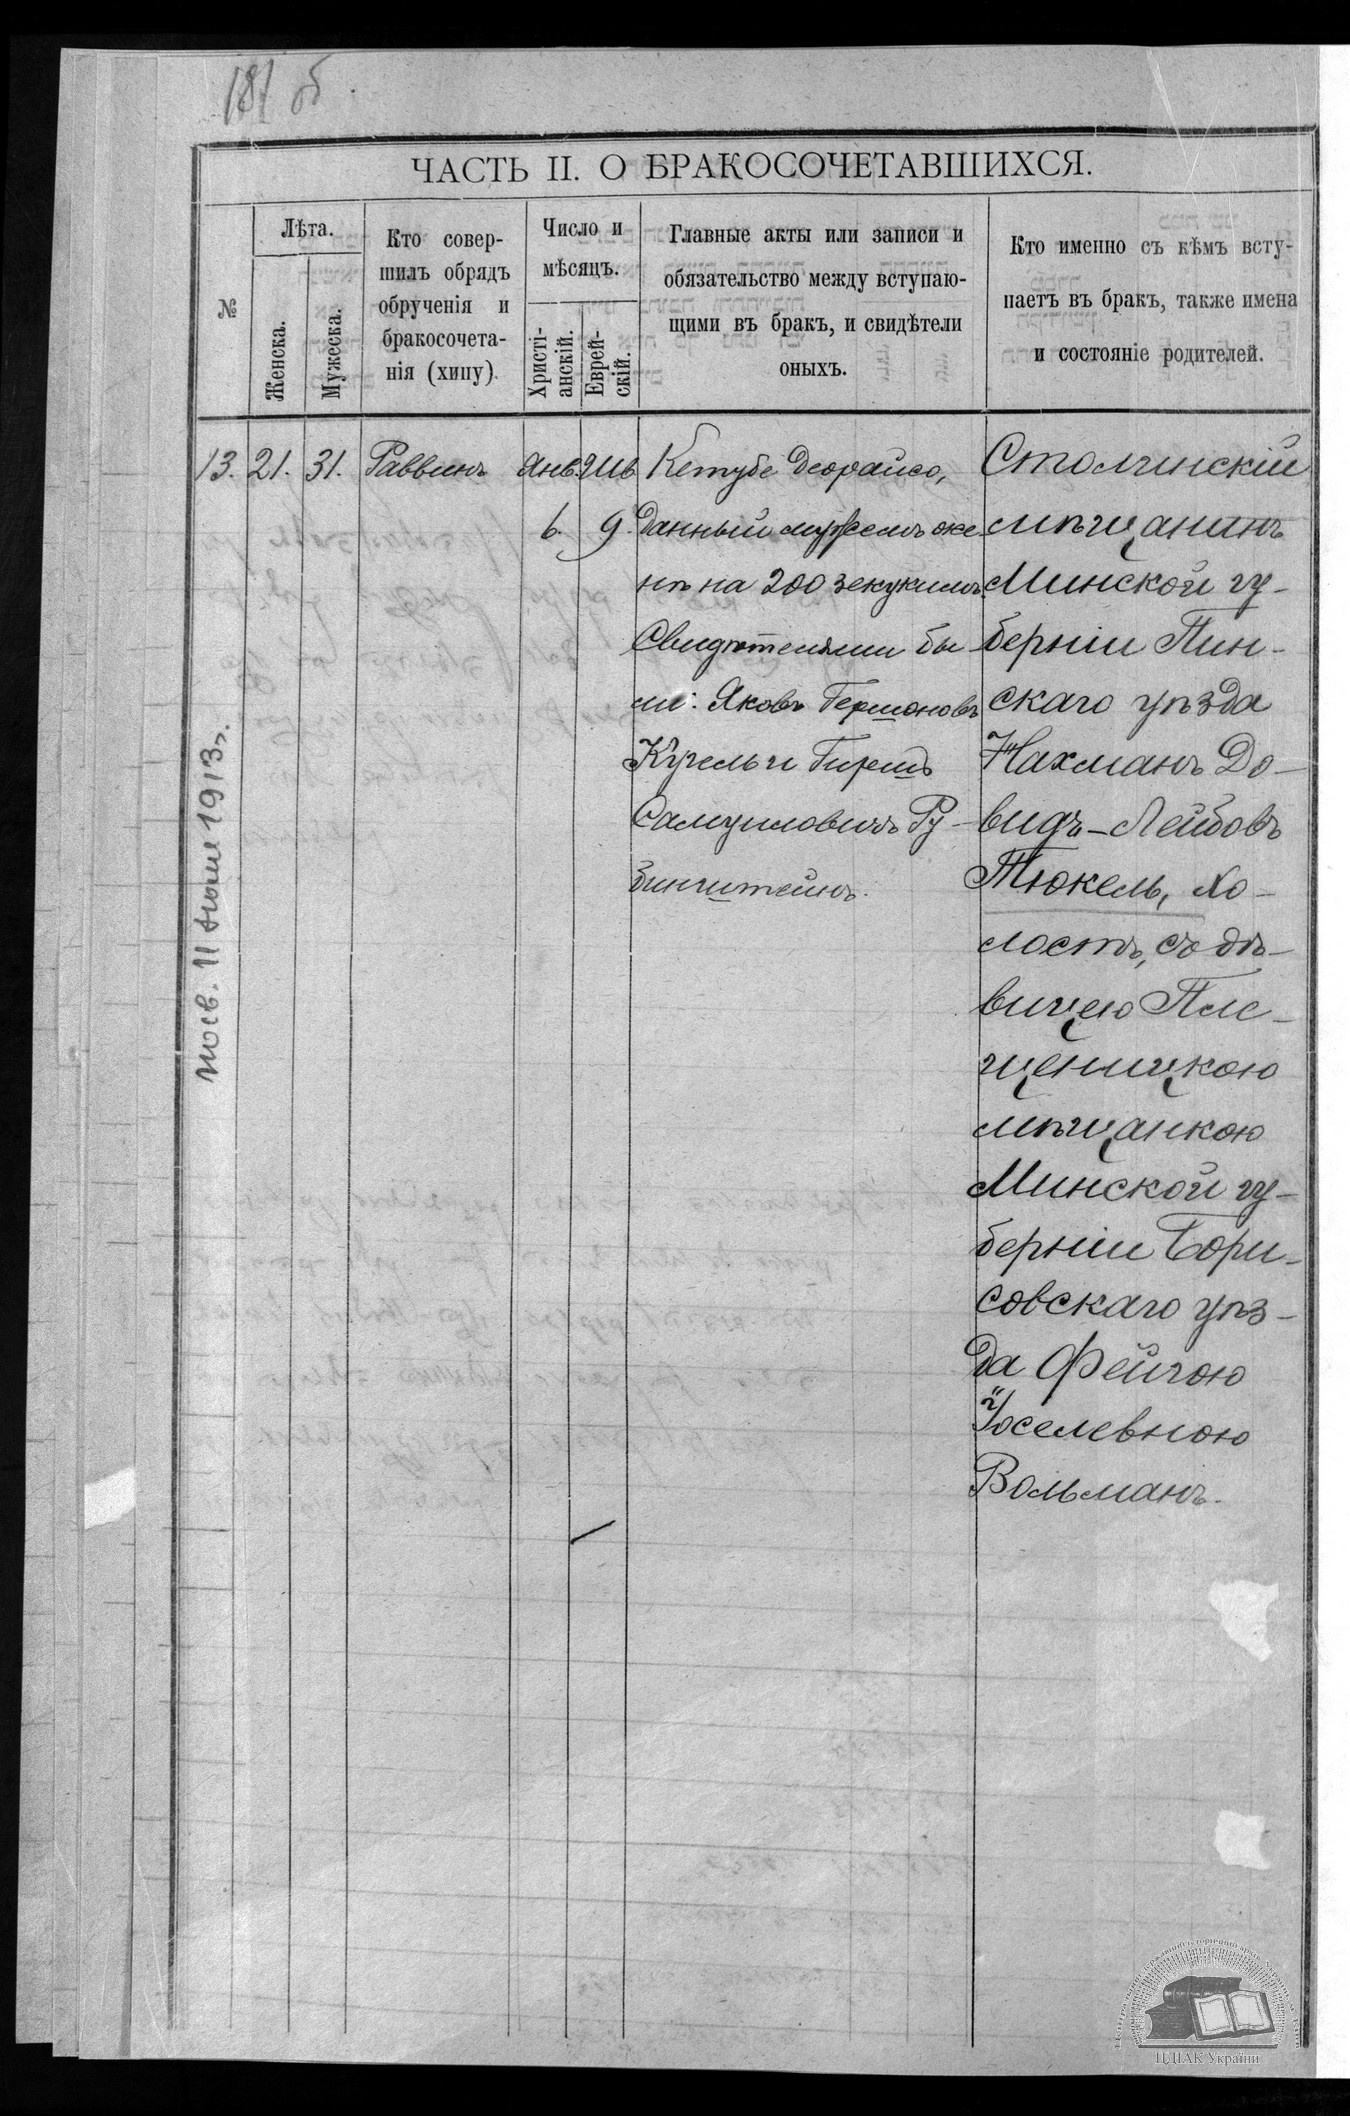 181 об.
ЧАСТЬ II. О БРАКОСОЧЕТАВШИХСЯ.
№
Лѣта.
Женска.
Мужеска.
Кто совер-
шилъ обрядъ
обрученія и
бракосочета-
нія (хипу).
Число и
мѣсяцъ.
Христі-
анскій.
Еврей-
скій.
Главные акты или записи и
обязательство между вступаю-
щими въ бракъ, и свидѣтели
оныхъ.
Кто именно съ кѣмъ всту-
паетъ въ бракъ, также имена
и состояніе родителей.
13.
21.
31.
Раввинъ
Янв.
6.
Шв.
9.
Кетубе Деорайсо,
данный мужемъ же
нѣ на 200 зекукимъ.
Свидѣтелями бы
ли: Яковъ Гершоновъ
Кугель и Гиршъ
Самуиловичъ Ру-
бинштейнъ.
Столинскій
мѣщанинъ
Минской гу-
берніи Пин-
скаго уѣзда
Нахманъ До-
видъ-Лейбовъ
Тюкель, хо-
лостъ, съ дѣ-
вицею Пле-
щеницкою
мѣщанкою
Минской гу-
берніи Бори-
совскаго уѣз-
да Фейгою
Іоселевною
Вольманъ.
11 Июня 1913 г.
ЦДІАК України